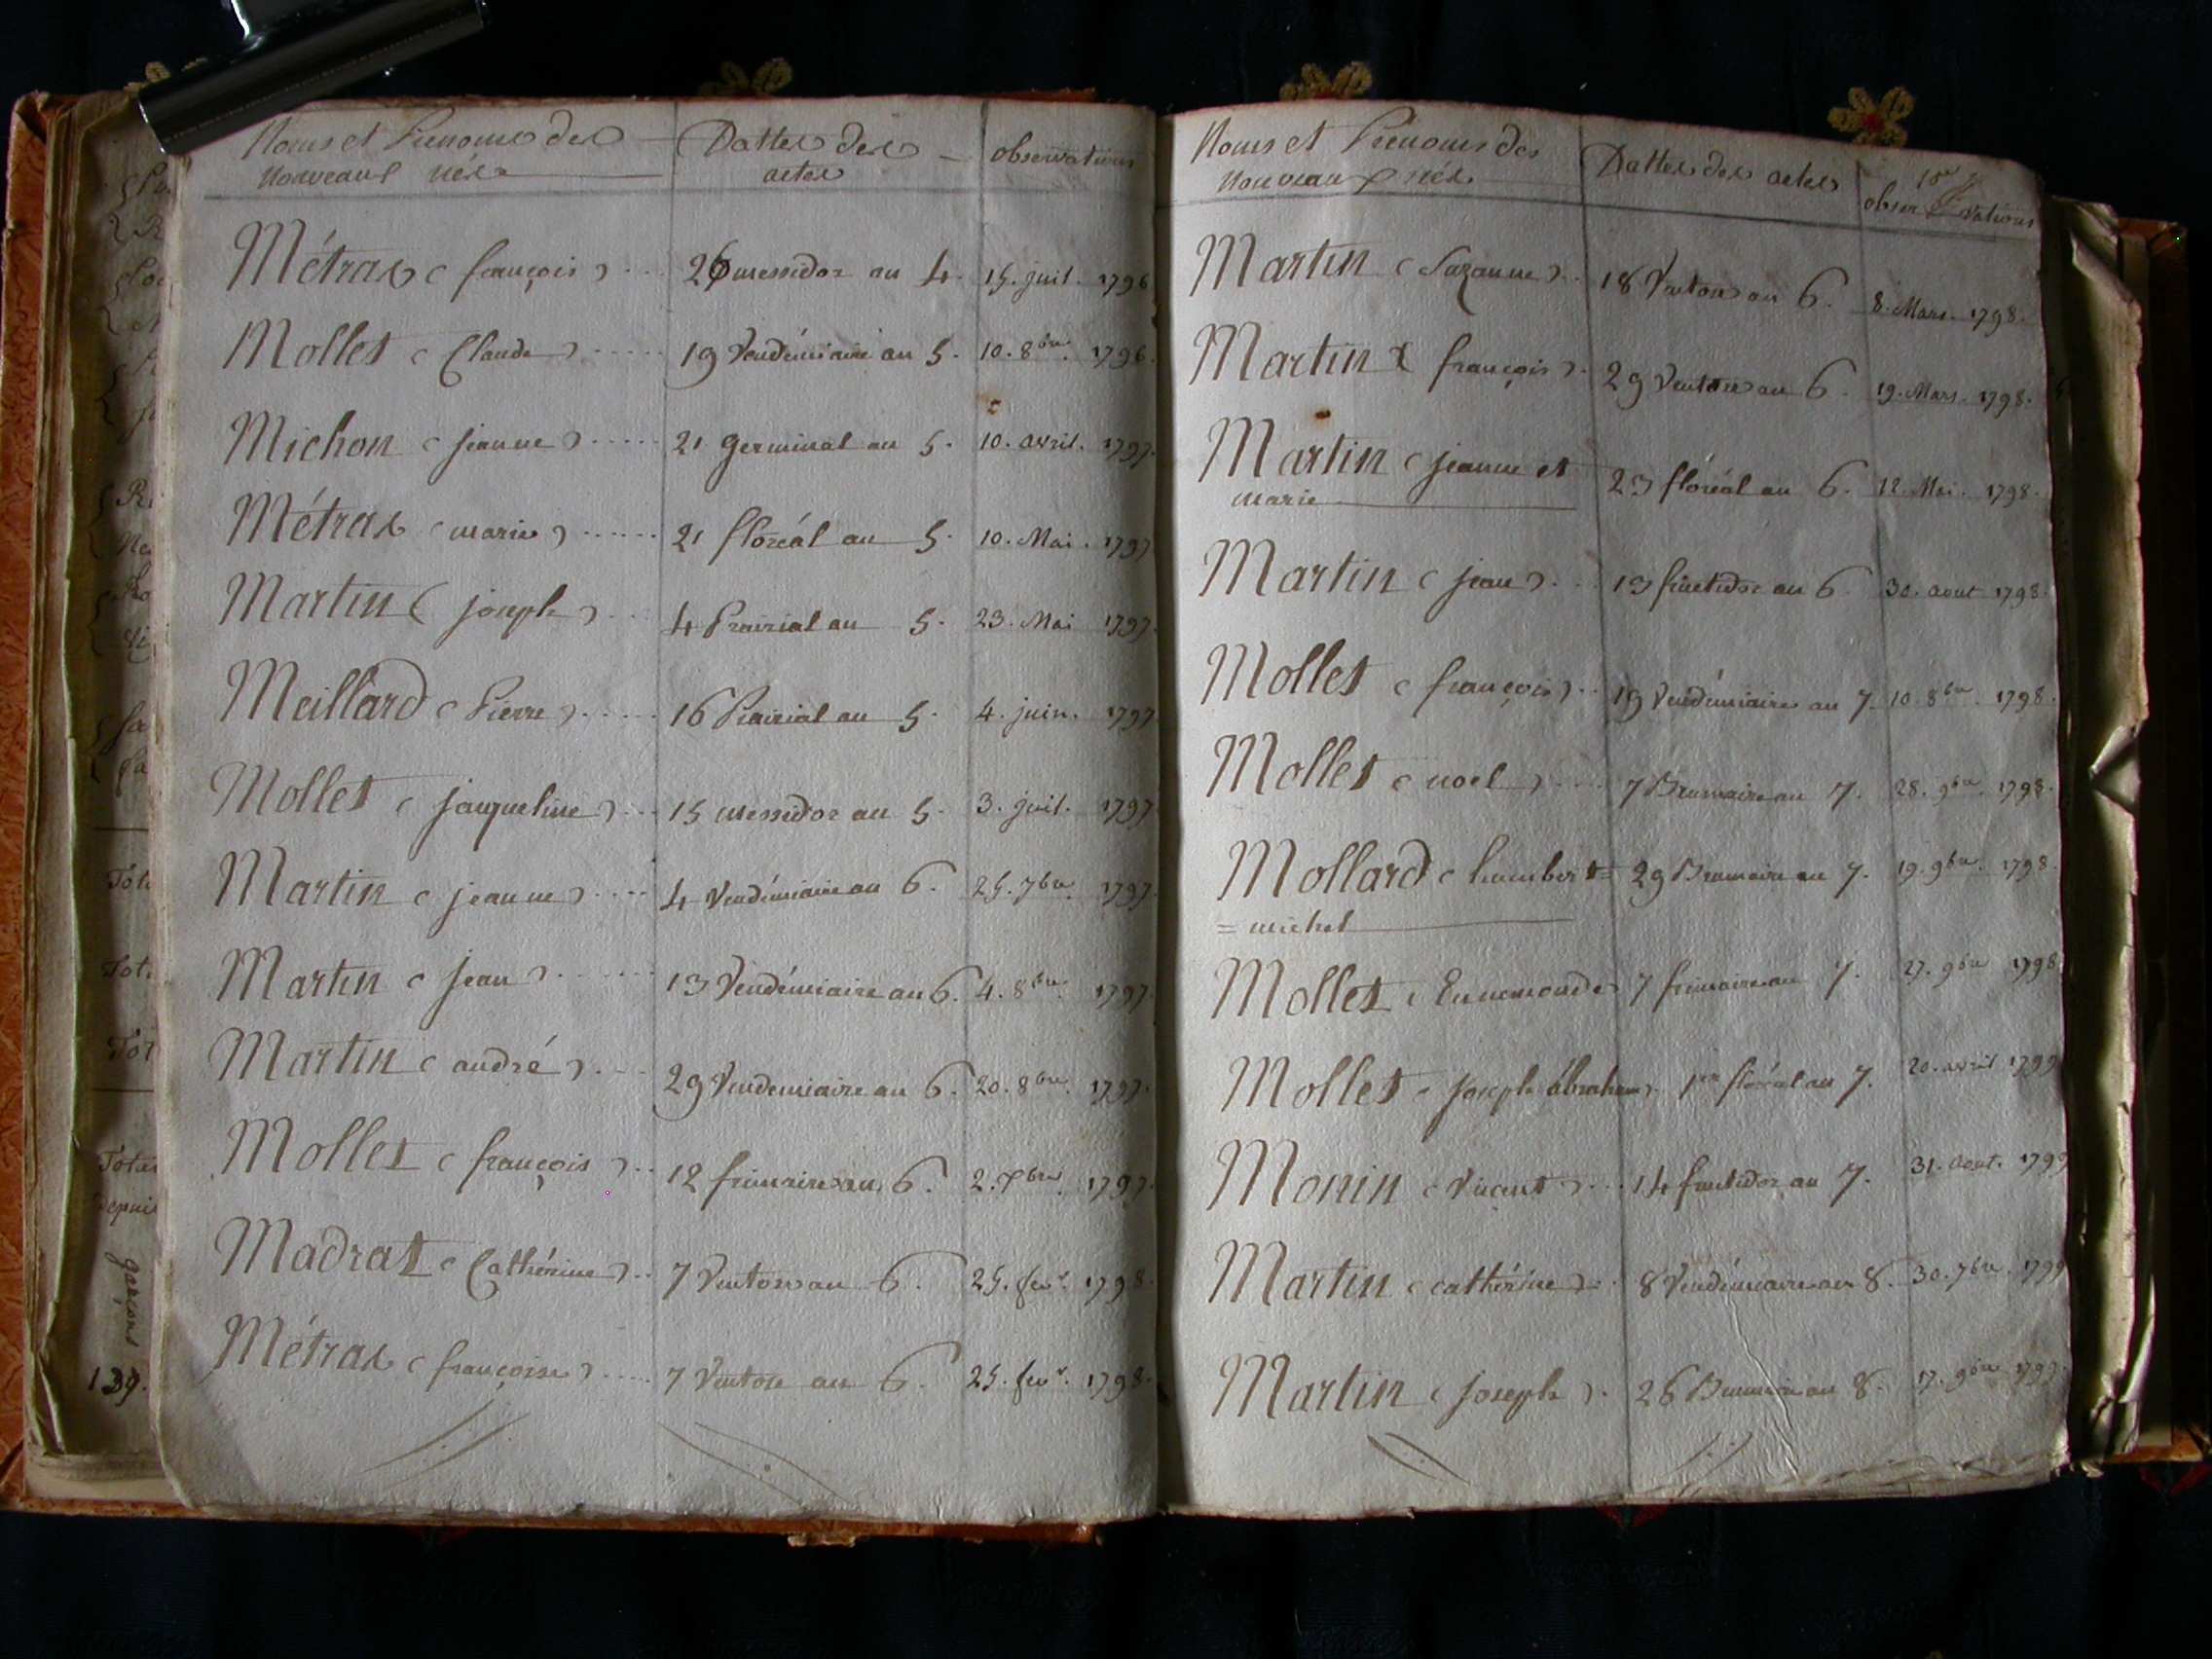 Noms et Prenoms des
nouveaux nés
Dattes des
actes
observations
Métras ( françois ) .... 26 messidor an 4. 15. juil. 1796
Mollet ( Claude ) ..... 19 Vendémiaire an 5. 10. 8bre. 1796.
Michon ( jeanne ) ..... 21 germinal an 5. 10. avril. 1797.
Métras ( marie ) ...... 21 floréal an 5. 10. Mai. 1797
Martin ( joseph ) .... 4 Prairial an 5. 23. Mai 1797.
Meillard ( Pierre ) ..... 16 Prairial an 5. 4. juin. 1797
Mollet ( jacqueline ) ... 15 messidor an 5. 3. juil. 1797
Martin ( jeanne ) .... 4 Vendémiaire an 6. 25. 7bre. 1797.
Martin ( jean ) ...... 13 Vendémiaire an 6. 4. 8bre. 1797.
Martin ( andré ) .... 29 Vendemiaire an 6. 20. 8bre. 1797.
Mollet ( françois ) .. 12 frimaire an 6. 2. Xbre. 1797.
Madrat ( Cathérine ) .. 7 Ventose an 6. 25. fevr. 1798.
Métras ( françoise ) ..... 7 Ventose an 6. 25. fevr. 1798.
Noms et Prenoms des
nouveaux nés
Dattes des actes
observations
Martin ( Suzanne ) .. 18 Ventose an 6. 8. Mars. 1798.
Martin ( françois ) . 29 Ventose an 6. 19. Mars. 1798.
Martin ( jeanne et 23 floréal an 6. 12. Mai. 1798.
marie
Martin ( jean ) ... 13 fructidor an 6 30. aout 1798.
Mollet ( françois ) .. 19 Vendémiaire an 7. 10. 8bre. 1798.
Mollet ( noel ) .... 7 Brumaire an 7. 28. 9bre. 1798.
Mollard ( humbert = 29 Brumaire an 7. 19. 9bre. 1798.
= michel
Mollet ( Ennemonde ) 7 frimaire an 7. 27. 9bre 1798.
Mollet ( Joseph Abraham ) 1er floréal an 7. 20. avril 1799
Monin ( Vincent ) ... 14 fructidor an 7. 31. Aout. 1799
Martin ( cathérine ) .. 8 Vendémiaire an 8. 30. 7bre. 1799
Martin ( joseph ) . 26 Brumaire an 8. 17. 9bre 1799.
garçons
139.